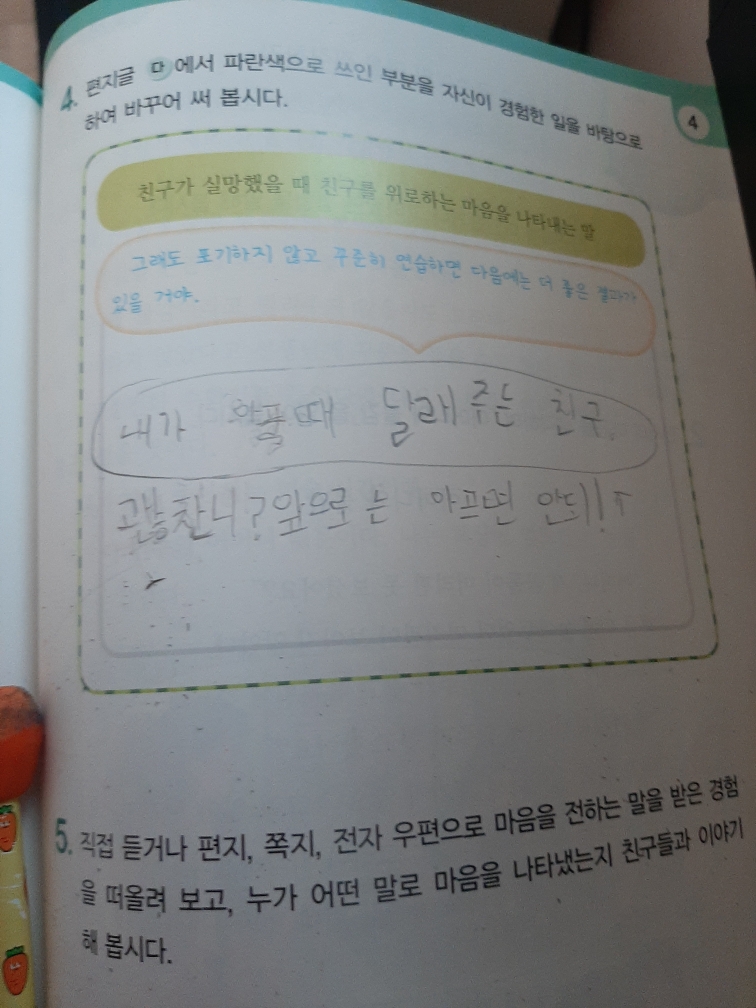 4. 편지글 다 에서 파란색으로 쓰인 부분을 자신이 경험한 일을 바탕으로
하여 바꾸어 써 봅시다.
4
친구가 실망했을 때 친구를 위로하는 마음을 나타내는 말
그래도 포기하지 않고 꾸준히 연습하면 다음에는 더 좋은 결과가
있을 거야.
내가 아플 때 달래 주는 친구
괜찮니? 앞으로는 아프면 안되!
5. 직접 듣거나 편지, 쪽지, 전자 우편으로 마음을 전하는 말을 받은 경험
을 떠올려 보고, 누가 어떤 말로 마음을 나타냈는지 친구들과 이야기
해 봅시다.